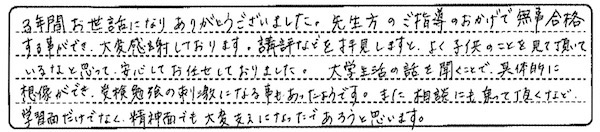 3年間お世話になりありがとうございました。先生方のご指導のおかげで無事合格
する事ができ、大変感謝しております。講評などを拝見しますと、よく子供のことを見て頂いて
いるなと思って、安心してお任せしておりました。 大学生活の話を聞くことで、具体的に
想像ができ、受検勉強の刺激になる事もあったようです。また相談にも乗って頂くなど、
学習面だけでなく、精神面でも大変支えになったであろうと思います。